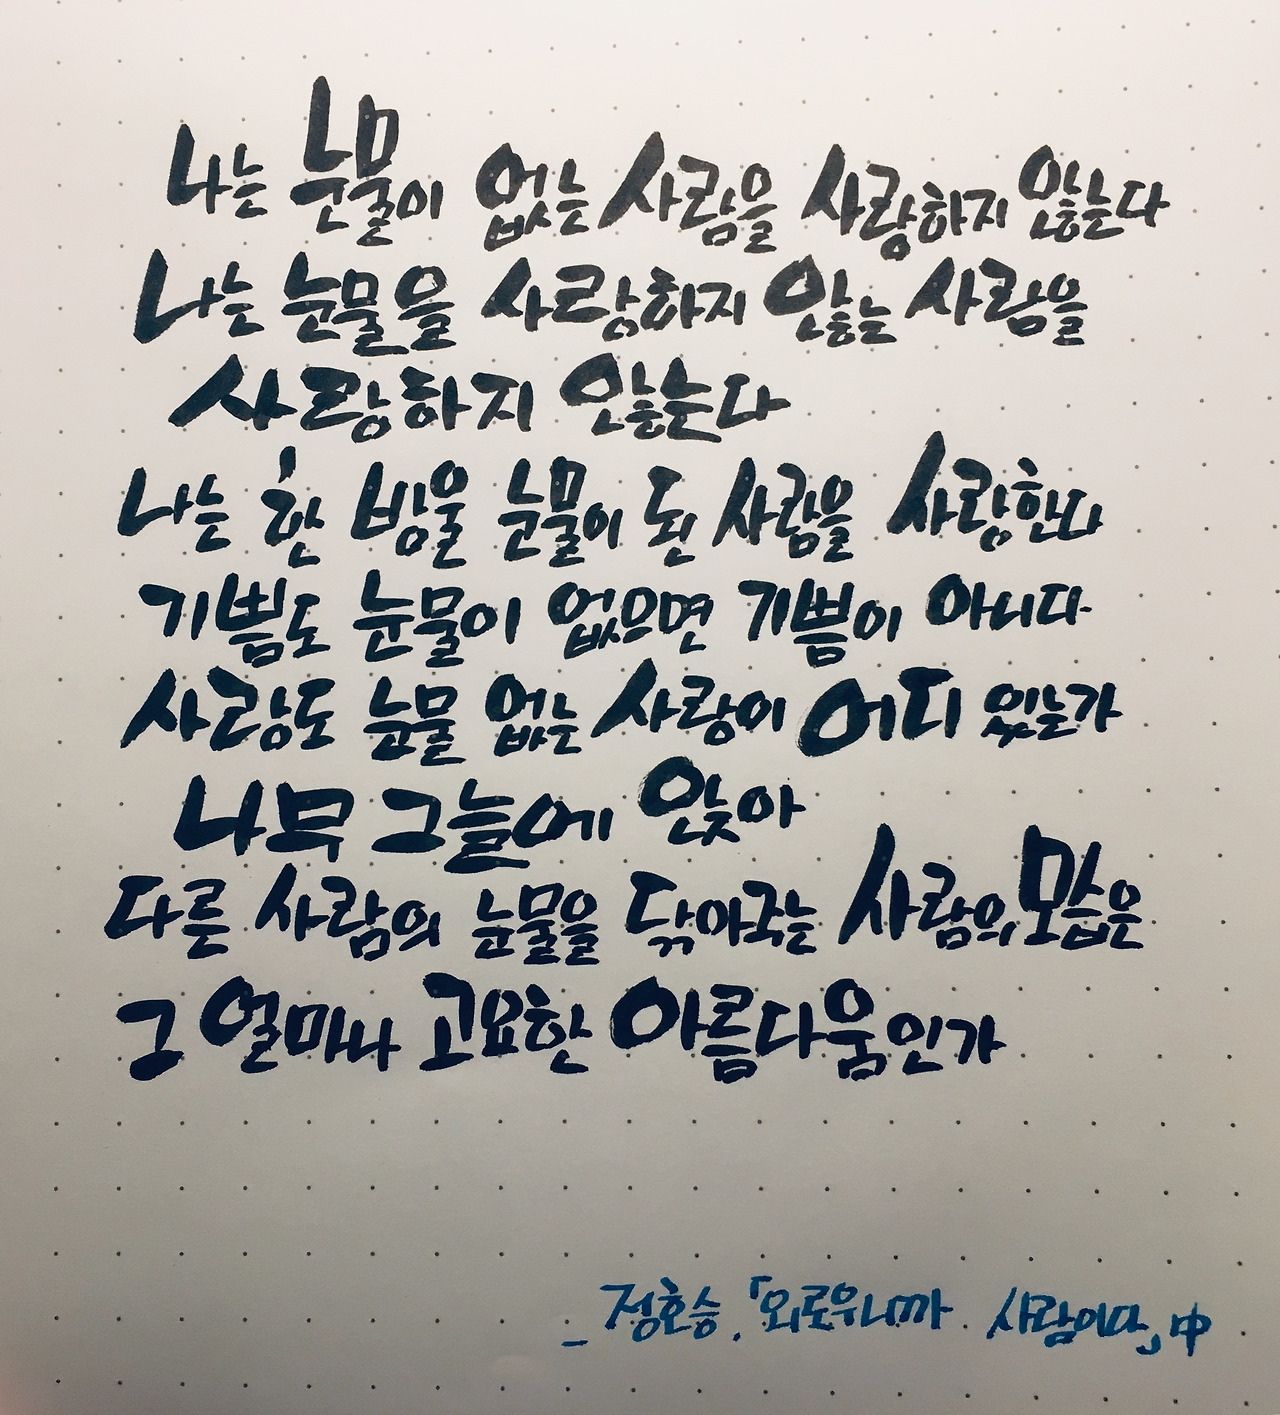 나는 눈물이 없는 사람을 사랑하지 않는다
나는 눈물을 사랑하지 않는 사람을
사랑하지 않는다
나는 한 방울 눈물이 된 사람을 사랑한다
기쁨도 눈물이 없으면 기쁨이 아니다
사랑도 눈물 없는 사랑이 어디 있는가
나무 그늘에 앉아
다른 사람의 눈물을 닦아주는 사람의 모습은
그 얼마나 고요한 아름다움인가
_ 정호승, 「외로우니까 사람이다」 中